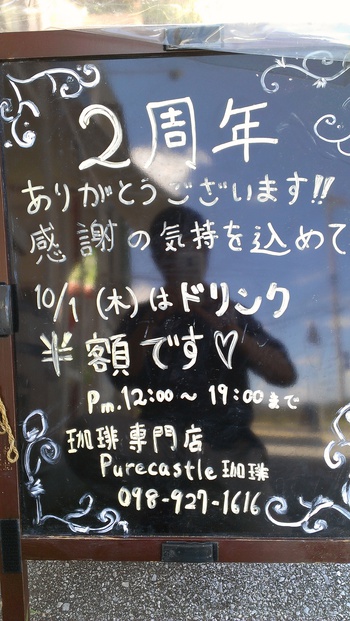 2周年
ありがとうございます!!
感謝の気持を込めて
10/1 (木)はドリンク
半額です♡
Pm.12:00〜19:00まで
珈琲専門店
Purecastle珈琲
098-927-1616